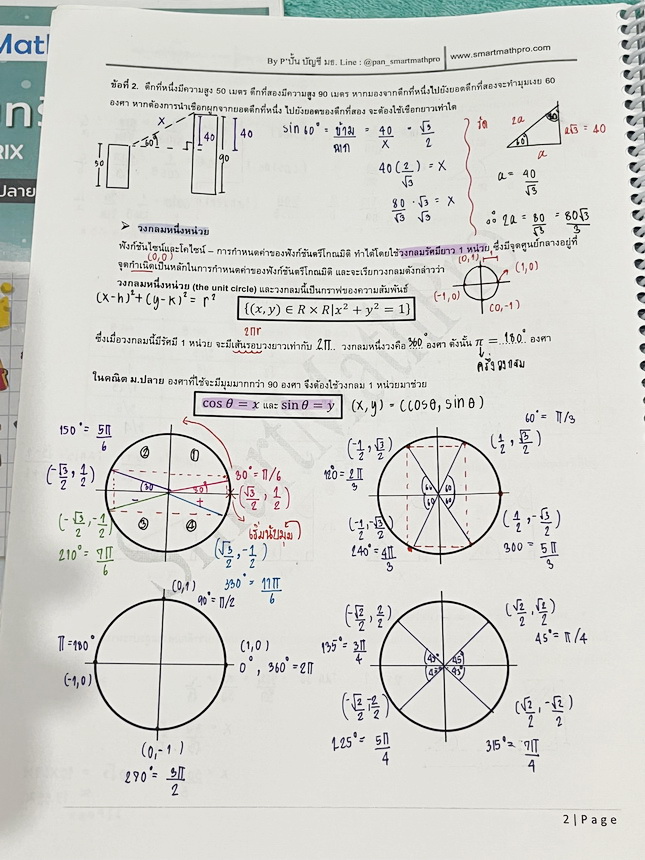 Mat
RIX
ปลาย
By P'ปั้น บัญชี มธ. Line : @pan_smartmathpro | www.smartmathpro.com
ข้อที่ 2. ตึกที่หนึ่งมีความสูง 50 เมตร ตึกที่สองมีความสูง 90 เมตร หากมองจากตึกที่หนึ่งไปยังยอดตึกที่สองจะทำมุมเงย 60
องศา หากต้องการนำเชือกผูกจากยอดตึกที่หนึ่ง ไปยังยอดของตึกที่สอง จะต้องใช้เชือกยาวเท่าใด
x 60° 40 40 50 90
sin 60° = ข้าม/ฉาก = 40/x = √3/2
40(2/√3) = x
80/√3 · √3/√3 = x
2a 30 60 a√3 = 40 a
a = 40/√3
∴ 2a = 80/√3 = 80√3/3
➤ วงกลมหนึ่งหน่วย
ฟังก์ชันไซน์และโคไซน์ – การกำหนดค่าของฟังก์ชันตรีโกณมิติ ทำได้โดยใช้วงกลมรัศมียาว 1 หน่วย ซึ่งมีจุดศูนย์กลางอยู่ที่
(0,0)
จุดกำเนิดเป็นหลักในการกำหนดค่าของฟังก์ชันตรีโกณมิติ และจะเรียกวงกลมดังกล่าวว่า
(0,1) (1,0) (-1,0) (0,-1)
วงกลมหนึ่งหน่วย (the unit circle) และวงกลมนี้เป็นกราฟของความสัมพันธ์
(x-h)² + (y-k)² = r²
{(x, y) ∈ R × R|x² + y² = 1}
2πr
ซึ่งเมื่อวงกลมนี้มีรัศมี 1 หน่วย จะมีเส้นรอบวงยาวเท่ากับ 2π.. วงกลมหนึ่งวงคือ 360° องศา ดังนั้น π = ..180° องศา
ครึ่งวงกลม
ในคณิต ม.ปลาย องศาที่ใช้จะมีมุมมากกว่า 90 องศา จึงต้องใช้วงกลม 1 หน่วยมาช่วย
cos θ = x และ sin θ = y (x,y) = (cosθ, sinθ)
150° = 5π/6
② ①
(-√3/2, 1/2)
30 30°
30° = π/6
(√3/2, 1/2)
- +
(-√3/2, -1/2)
③ ④
(เริ่มนับมุม)
210° = 7π/6
(√3/2, -1/2)
330° = 11π/6
60° = π/3
(-1/2, √3/2) (1/2, √3/2)
120° = 2π/3
60 60
60 60
(-1/2, -√3/2) (1/2, -√3/2)
240° = 4π/3 300° = 5π/3
(0,1)
90° = π/2
π = 180°
(1,0)
0°, 360° = 2π
(-1,0)
(0,-1)
270° = 3π/2
(-√2/2, 2/2) (√2/2, √2/2)
135° = 3π/4 45° = π/4
45° 45°
45° 45°
(-√2/2, -2/2) (√2/2, -√2/2)
225° = 5π/4 315° = 7π/4
2 | Page